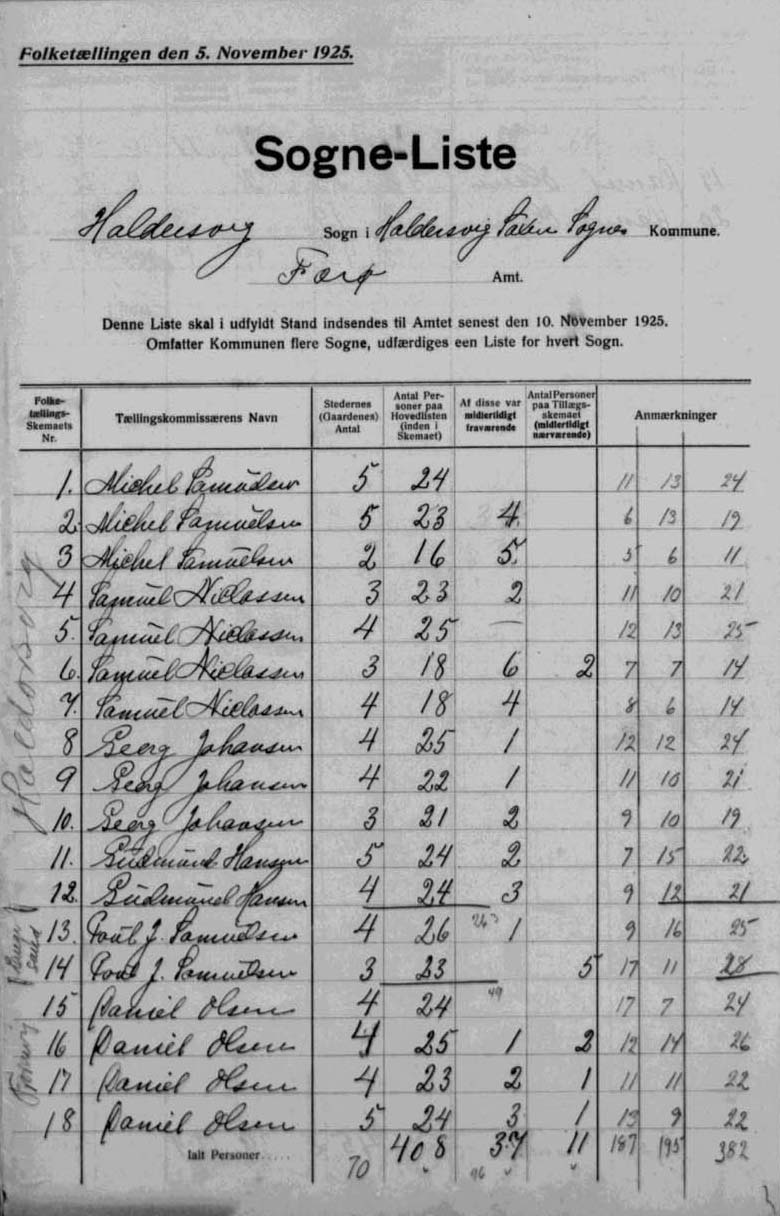 Folketællingen den 5. November 1925.
Sogne-Liste
Haldersvig Sogn i Haldersvig Sogns Kommune.
Færø Amt.
Denne Liste skal i udfyldt Stand indsendes til Amtet senest den 10. November 1925.
Omfatter Kommunen flere Sogne, udfærdiges een Liste for hvert Sogn.
Folketællings-Skemaets Nr. Tællingskommissærens Navn Stedernes (Gaardenes) Antal Antal Personer paa Hovedlisten (inden i Skemaet) Af disse var midlertidigt fraværende Antal Personer paa Tillægsskemaet (midlertidigt nærværende) Anmærkninger
1. Michel Samuelsen 5 24 11 13 24
2. Michel Samuelsen 5 23 4 6 13 19
3 Michel Samuelsen 2 16 5 5 6 11
4 Samuel Niclassen 3 23 2 11 10 21
5. Samuel Niclassen 4 25 — 12 13 25
6. Samuel Niclassen 3 18 6 2 7 7 14
7. Samuel Niclassen 4 18 4 8 6 14
8 Georg Johansen 4 25 1 12 12 24
9 Georg Johansen 4 22 1 11 10 21
10. Georg Johansen 3 21 2 9 10 19
11. Gudmund Hansen 5 24 2 7 15 22
12. Gudmund Hansen 4 24 3 9 12 21
263
13. Poul J. Samuelsen 4 26 1 9 16 25
14 Poul J. Samuelsen 3 23 5 17 11 28
49
15 Daniel Olsen 4 24 17 7 24
16 Daniel Olsen 4 25 1 2 12 14 26
17 Daniel Olsen 4 23 2 1 11 11 22
18 Daniel Olsen 5 24 3 1 13 9 22
Ialt Personer 70 408 37 11 187 195 382
96
Haldorsvig